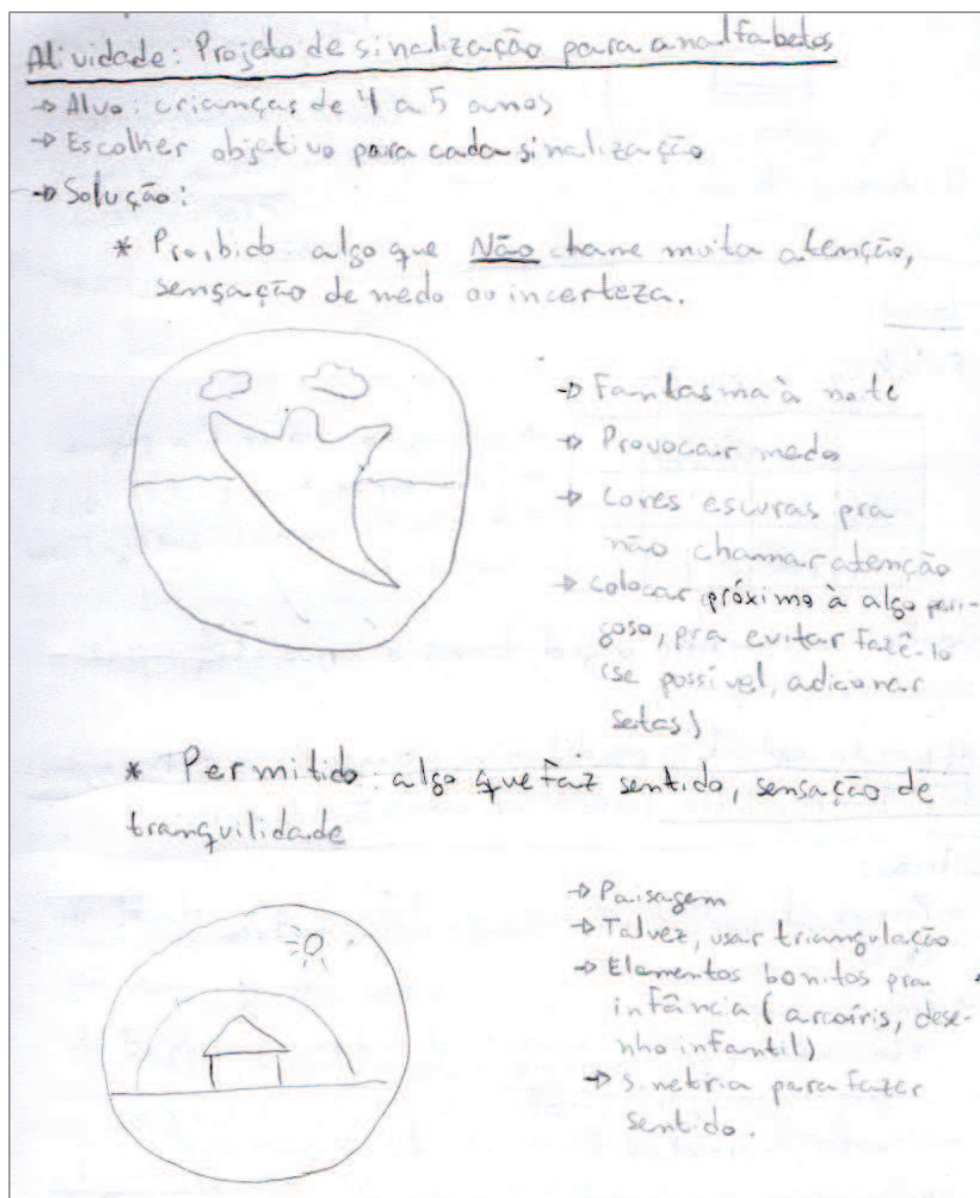 Atividade: Projeto de sinalização para analfabetos
→ Alvo: crianças de 4 a 5 anos
→ Escolher objetivo para cada sinalização
→ Solução:
* Proibido: algo que Não chame muita atenção,
sensação de medo ou incerteza.
→ Fantasma à noite
→ Provocar medo
→ Cores escuras pra
não chamar atenção
→ colocar próximo à algo peri-
goso, pra evitar fazê-lo
(se possível, adicionar
setas)
* Permitido: algo que faz sentido, sensação de
tranquilidade
→ Paisagem
→ Talvez, usar triangulação
→ Elementos bonitos pra
infância (arcoíris, dese-
nho infantil)
→ simetria para fazer
sentido.